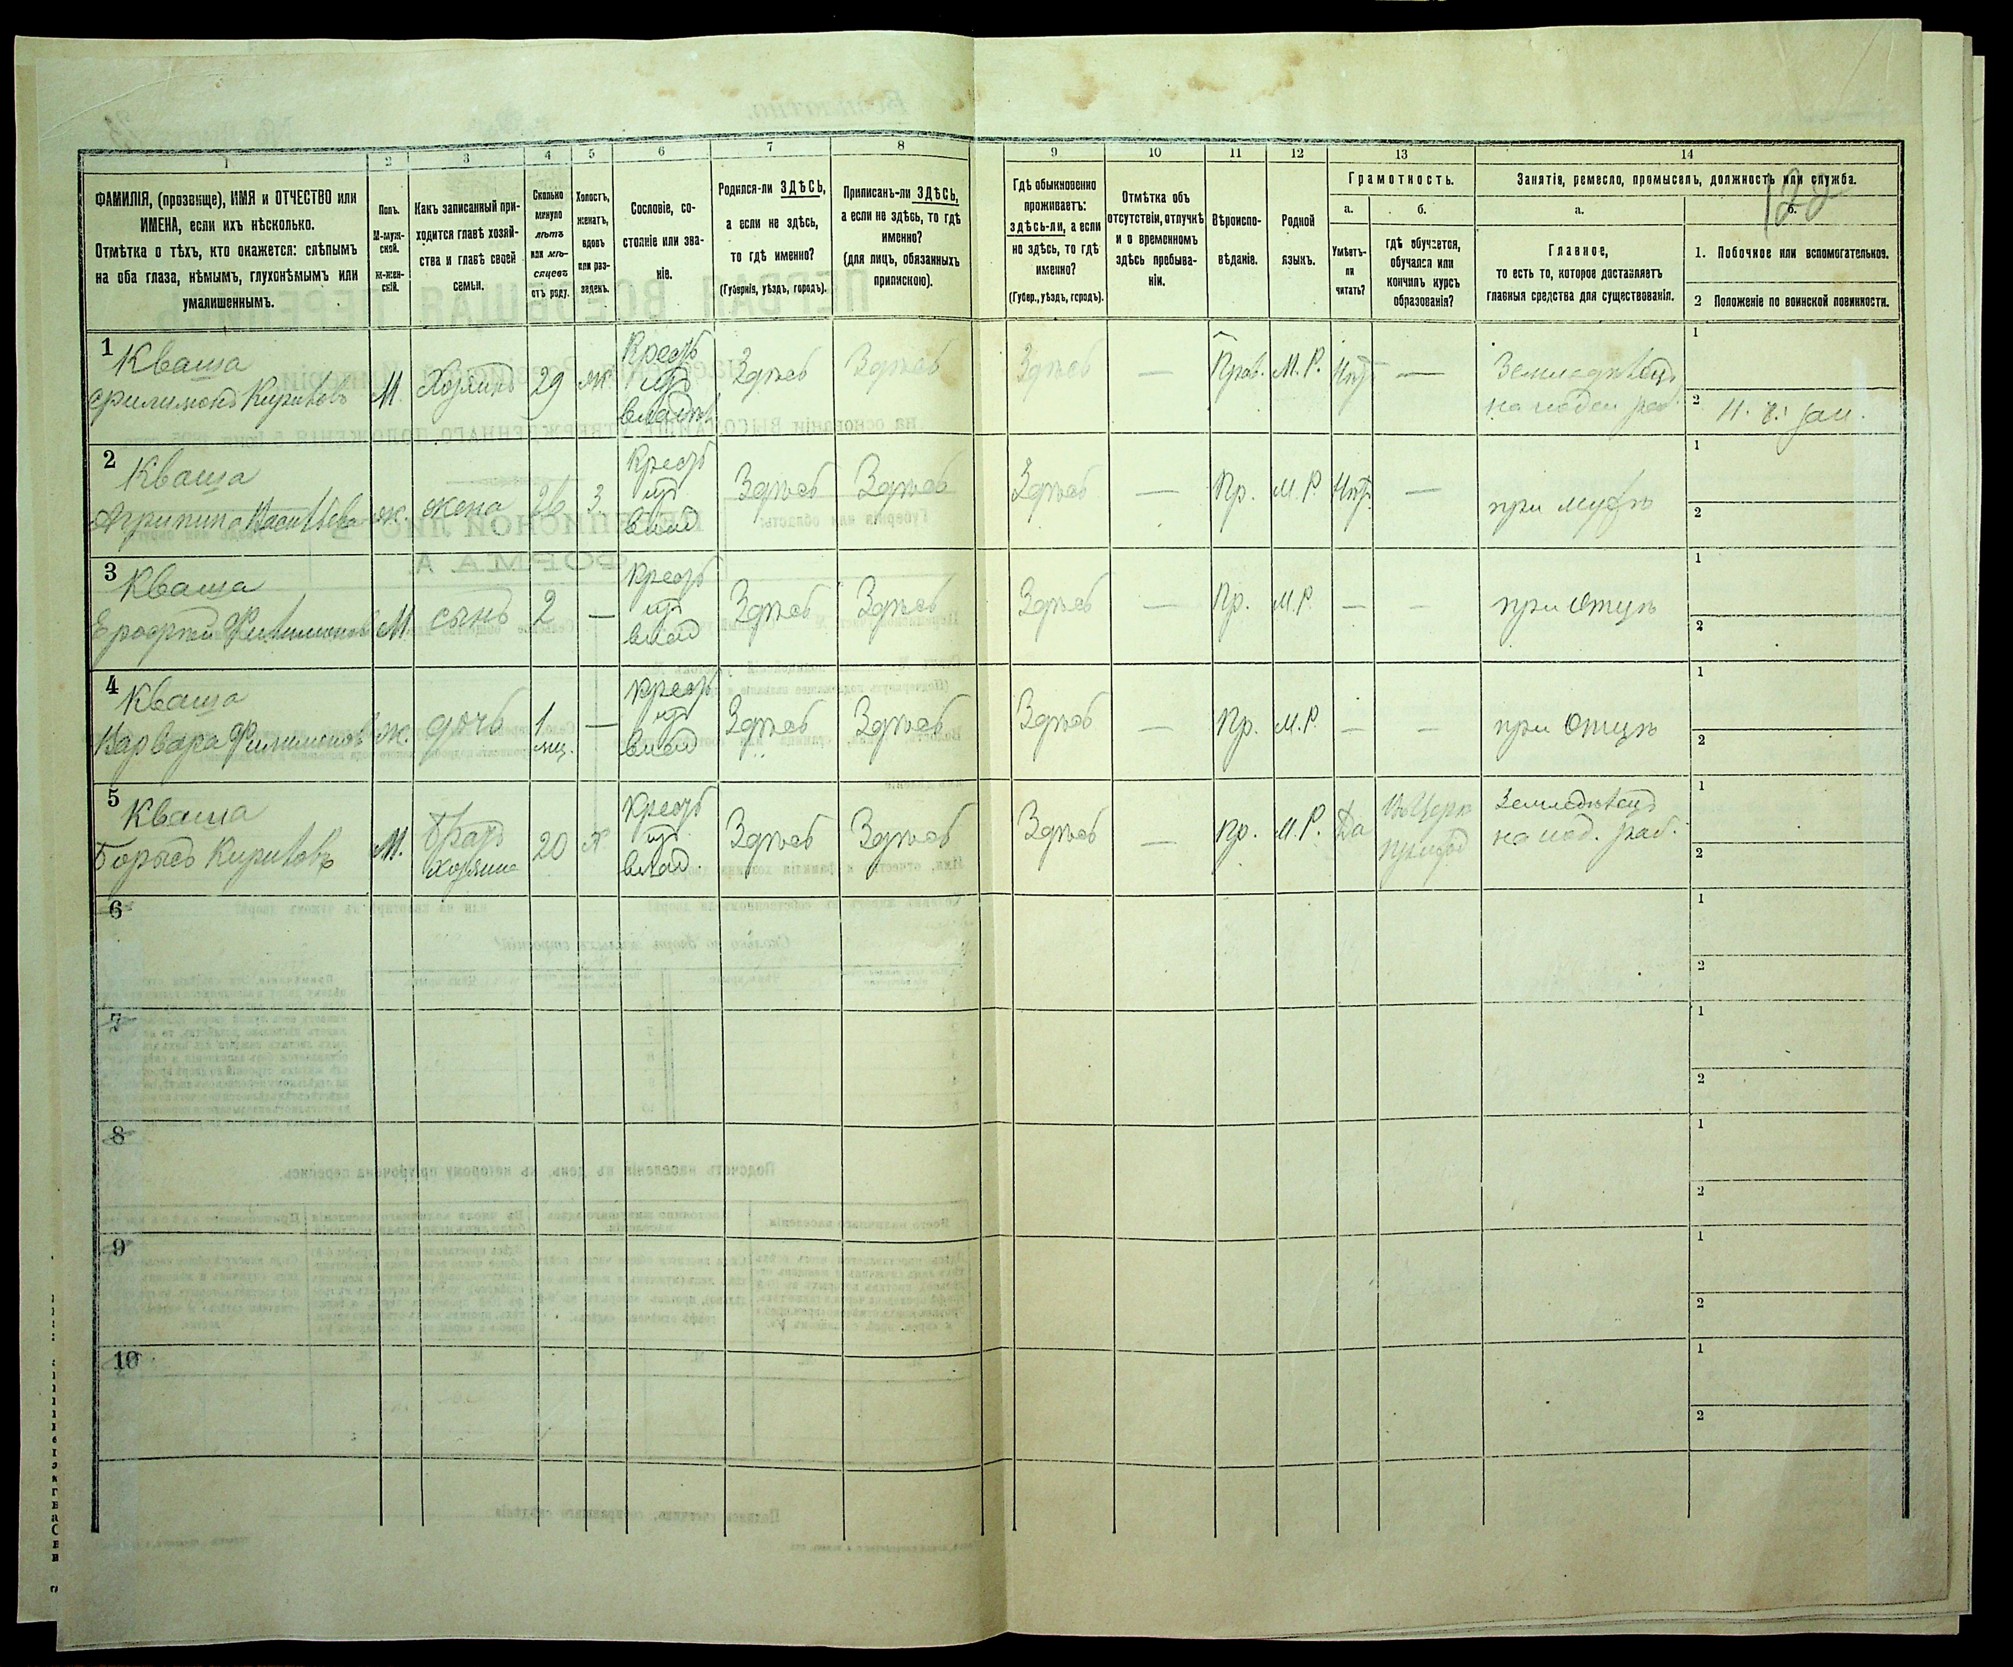 1 2 3 4 5 6 7 8 9 10 11 12 13 14
122
ФАМИЛІЯ, (прозвище), ИМЯ и ОТЧЕСТВО или
ИМЕНА, если ихъ нѣсколько.
Отмѣтка о тѣхъ, кто окажется: слѣпымъ
на оба глаза, нѣмымъ, глухонѣмымъ или
умалишеннымъ.
Полъ.
М-муж-
ской.
ж-жен-
скій.
Какъ записанный при-
ходится главѣ хозяй-
ства и главѣ своей
семьи.
Сколько
минуло
лѣтъ
или мѣ-
сяцевъ
отъ роду.
Холостъ,
женатъ,
вдовъ
или раз-
веденъ.
Сословіе, со-
стояніе или зва-
ніе.
Родился-ли ЗДѢСЬ,
а если не здѣсь,
то гдѣ именно?
(Губернія, уѣздъ, городъ).
Приписанъ-ли ЗДѢСЬ,
а если не здѣсь, то гдѣ
именно?
(для лицъ, обязанныхъ
припискою).
Гдѣ обыкновенно
проживаетъ:
здѣсь-ли, а если
не здѣсь, то гдѣ
именно?
(Губер., уѣздъ, городъ).
Отмѣтка объ
отсутствіи, отлучкѣ
и о временномъ
здѣсь пребыва-
ніи.
Вѣроиспо-
вѣданіе.
Родной
языкъ.
Грамотность.
а.
Умѣетъ-
ли
читать?
б.
гдѣ обучается,
обучался или
кончилъ курсъ
образованія?
Занятія, ремесло, промыселъ, должность или служба.
а.
Главное,
то есть то, которое доставляетъ
главныя средства для существованія.
б.
1. Побочное или вспомогательное.
2 Положеніе по воинской повинности.
1
Кваша
Филимонъ Кириловъ
М
Хозяинъ
29
ж.
Крестъ
изъ
владѣл
Здѣсь
Здѣсь
Здѣсь
—
Прав.
М. Р.
Нѣт
—
Земледѣлецъ
1
2
2
Кваша
Агрипина Васильева
ж.
жена
26
З
Крестъ
изъ
влад
Здѣсь
Здѣсь
Здѣсь
—
Пр.
М. Р.
Нѣт.
—
при мужѣ
1
2
3
Кваша
Ерофтей Филимонов
М
сынъ
2
—
Крестъ
изъ
влад
Здѣсь
Здѣсь
Здѣсь
—
Пр.
М. Р.
—
—
при отцѣ
1
2
4
Кваша
Варвара Филимонов
ж.
дочь
1
мц.
—
Крестъ
изъ
влад
Здѣсь
Здѣсь
Здѣсь
—
Пр.
М. Р.
—
—
при отцѣ
1
2
5
Кваша
Борысъ Кириловъ
М.
братъ
хозяина
20
Х
Крестъ
изъ
влад.
Здѣсь
Здѣсь
Здѣсь
—
Пр.
М. Р.
Да
Въ Церк
приход
Земледѣлецъ
1
2
6
1
2
7
1
2
8
1
2
9
1
2
10
1
2